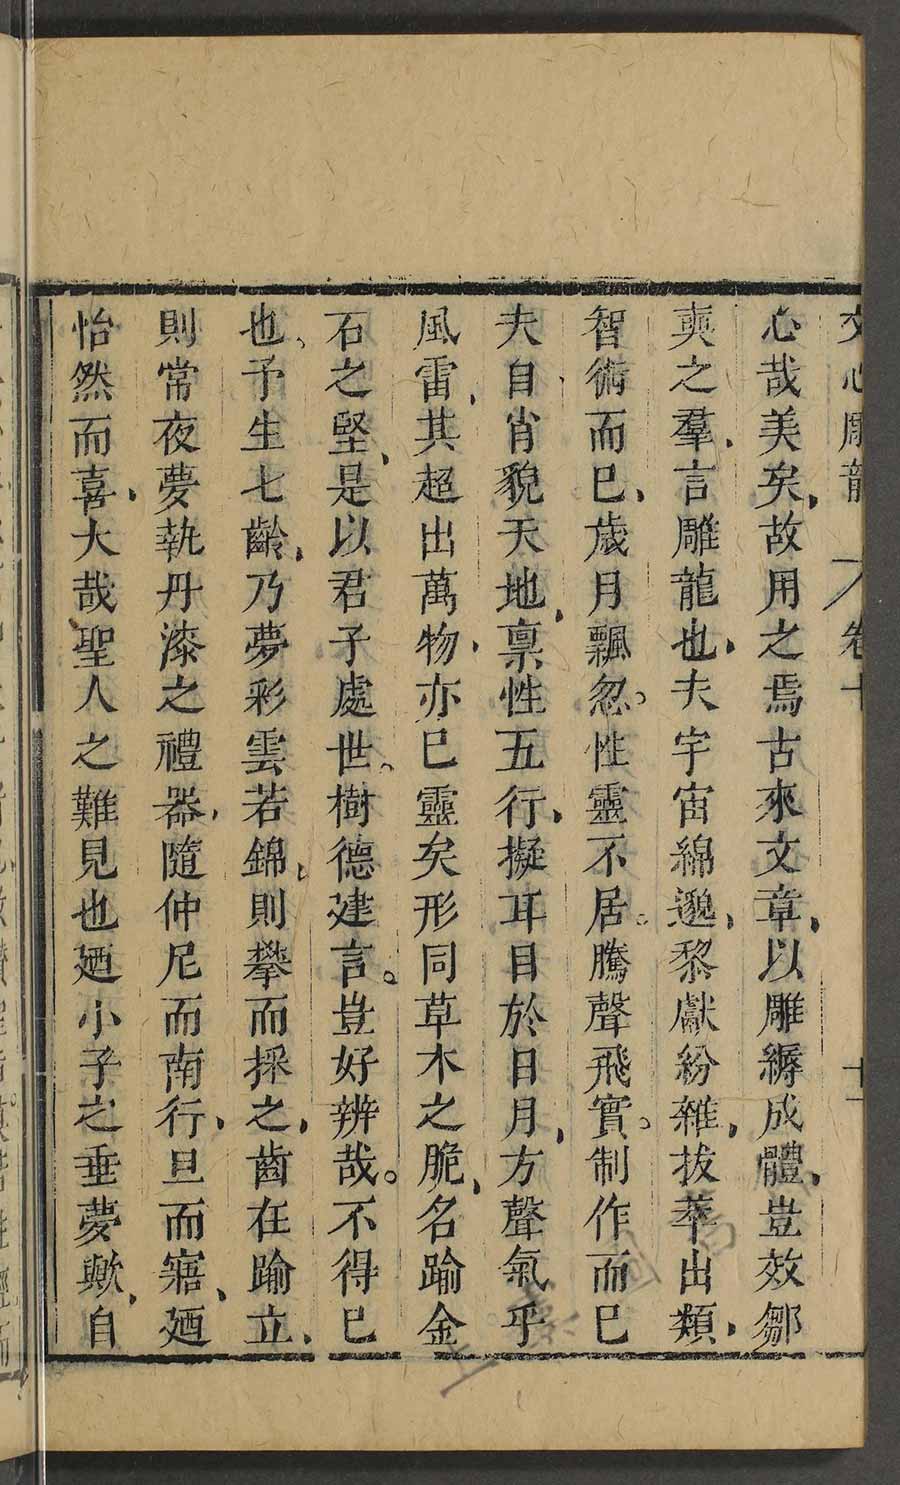 文心雕龍 卷十 十一
心哉美矣、故用之焉古來文章、以雕縟成體、豈效鄒
奭之羣、言雕龍也、夫宇宙綿邈、黎獻紛雜、拔萃出類、
智術而已、歲月飄忽。性靈不居。騰聲飛實。制作而已
夫自肖貌天地、禀性五行、擬耳目於日月、方聲氣乎
風雷、其超出萬物、亦已靈矣形同草木之脆、名踰金
石之堅、是以君子處世、樹德建言。豈好辨哉。不得已
也、予生七齡、乃夢彩雲若錦、則攀而採之、齒在踰立、
則常夜夢執丹漆之禮器、隨仲尼而南行、旦而寤、廼
怡然而喜、大哉聖人之難見也廼小子之垂夢歟、自